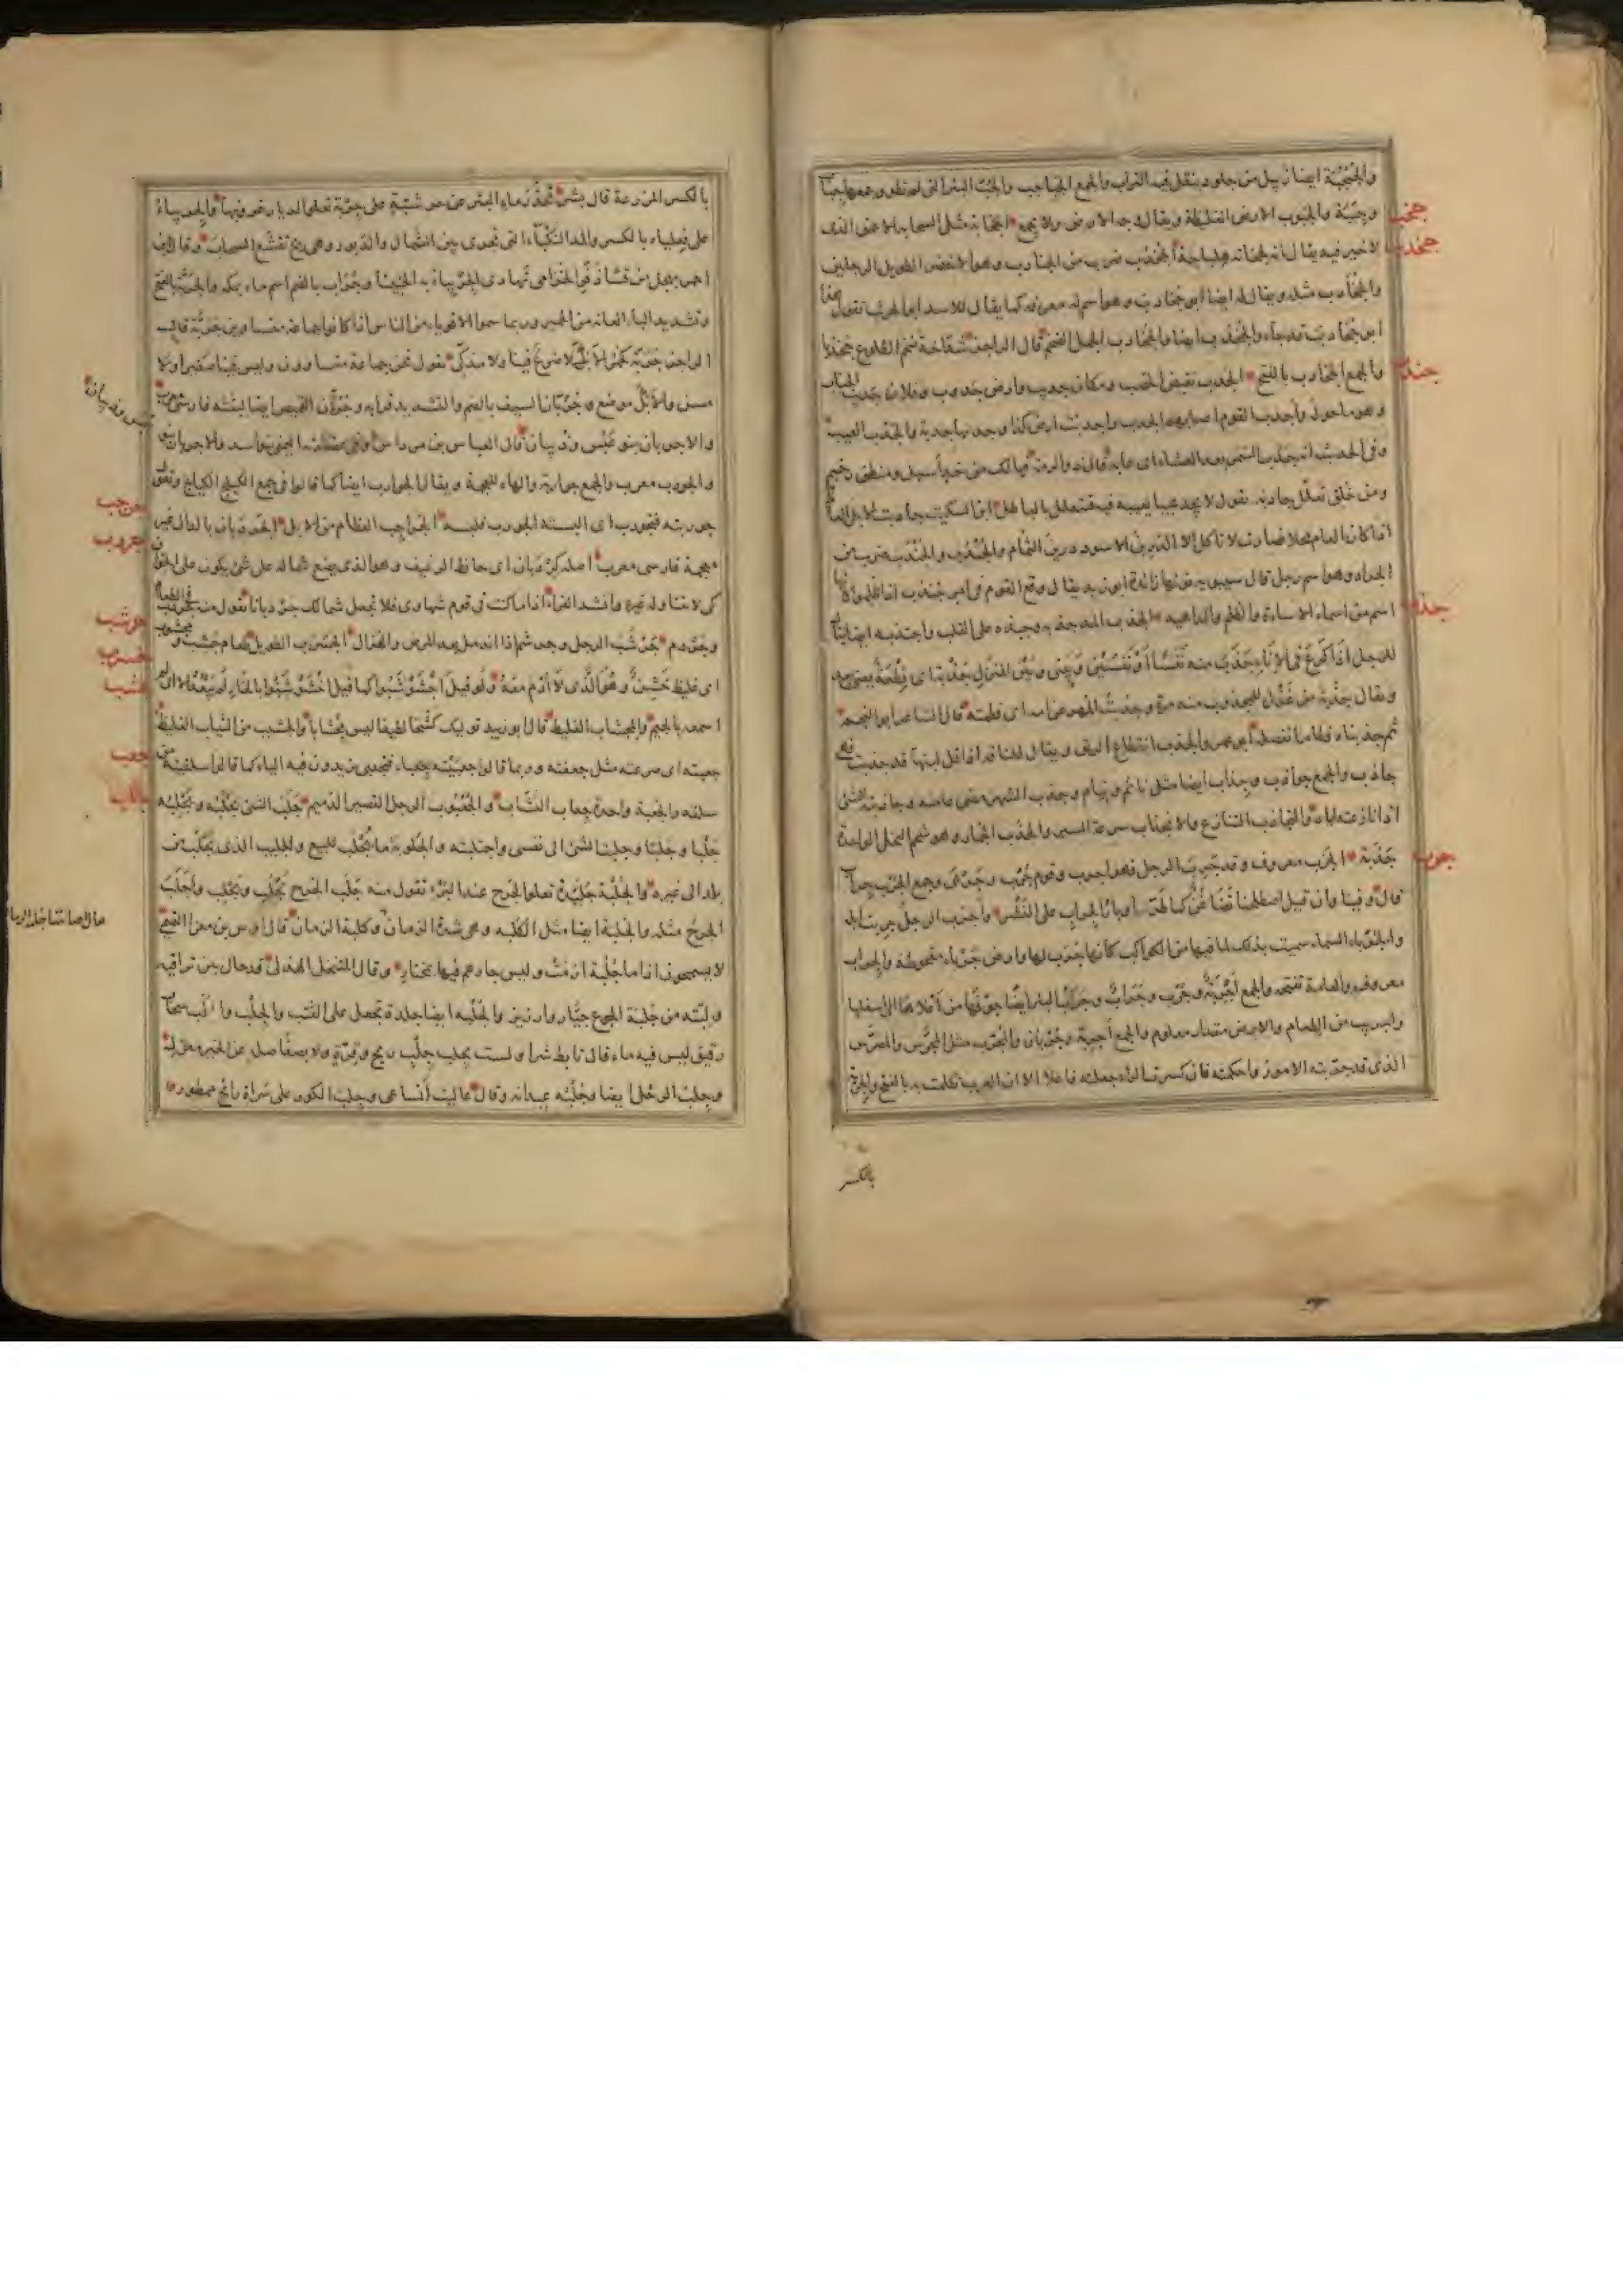 والجبجبة ايضا زبيل من جلود ينقل فيه التراب والجمع الجباجب والجب البئر التى لم تطو وجمعها جباب
وجببة والجبوب الارض الغليظة ويقال وجه الارض ولا يجمع الجخابة مثل السحابة الاحمق الذى
جخب
لا خير فيه يقال انه لجخابة هلباجة الجخدب ضرب من الجنادب وهو الاخضر الطويل الرجلين
جخدب
والجخادب مثله ويقال له ايضا ابو جخادب وهو اسم له معرفة كما يقال للاسد ابو الحرث تقول هذا
ابو جخادب قد جاء والجخدب ايضا والجخادب الجمل الضخم قال الراجز شداخة ضخم الضلوع جخدبا
والجمع الجخادب بالفتح الجدب نقيض الخصب ومكان جدب وارض جدوب وفلان جديب الجناب
وهو ما حوله واجدب القوم اصابهم الجدب واجدبت ارض كذا وجدتها جدبة والجدب العيب
وفى الحديث انه جدب السمر بعد العشاء اى عابه قال ذو الرمة فيا لك من خد أسيل ومنطق رخيم
ومن خلق تعلل جادبه يقول لا يجد عيبا يعيبه فيتعلل بالباطل ابن السكيت جادبت الابل العام
اذا كان العام محلا فصارت لا تاكل الا الدرين الاسود درين الثمام والجندب والجندب ضرب من
الجراد وهو اسم رجل قال سيبويه نونها زائدة ابو زيد يقال وقع القوم فى ام جندب اذا ظلموا كانها
اسم من اسماء الاساءة والظلم والداهية الجذب المد جذبه وجبذه على القلب واجتذبه ايضا يقال
جذب
للرجل اذا كرع فى الاناء جذب منه نفسا او نفسين وبينى وبين المنزل جذبة اى قطعة يعنى بعد
ويقال جذبة من غزل للمجذوب منه مرة وجذبت المهر عن امه اى فطمته قال الشاعر ابو النجم
ثم جذبناه فطاما نفصله ابو عمرو الجذب انقطاع الريق ويقال للناقة اذا قل لبنها قد جذبت فهى
جاذب والجمع جواذب وجذاب ايضا مثل نائم ونيام وجذب الشهر مضى عامته وجاذبته الشئ
اذا نازعته اياه والتجاذب التنازع والانجذاب سرعة السير والجذب الجمار وهو شحم النخل الواحدة
جذبة الجرب معروف وقد جرب الرجل فهو اجرب وقوم جرب وجربى وجمع الجرب جراب
جرب
قال وفينا وان قيل اصطلحنا تضاغن كما طر اوبار الجراب على النشر واجرب الرجل جربت ابله
والجرباء السماء سميت بذلك لما فيها من الكواكب كانها جرب لها وارض جرباء مقحوطة والجراب
معروف والعامة تفتحه والجمع اجربة وجرب وجراب البئر ايضا جوفها من اعلاها الى اسفلها
والجريب من الطعام والارض مقدار معلوم والجمع اجربة وجربان والمجرب مثل المجرس والمضرس
الذى قد جربته الامور واحكمته فان كسرت الراء جعلته فاعلا الا ان العرب تكلمت به بالفتح والجربة
بالكسر
بالكسر المزرعة قال بشر تحدر ماء البئر عن جرشية على جربة تعلو الدبار غروبها والجربياء
على فعلياء بالكسر والمد النكباء التى تجرى بين الشمال والدبور وهى ريح تقشع السحاب وقال ابن
احمر بهجل من قسا ذفر الخزامى تهادى الجربياء به الحنينا وجراب بالضم اسم ماء بمكة والجربة بالفتح
وتشديد الباء العانة من الحمير وربما سموا الاقوياء من الناس اذا كانوا جماعة متساوين جربة قال
الراجز جربة كحمر الابك لا ضرع فينا ولا مذكى يقول نحن جماعة متساوون وليس فينا صغير ولا
مسن والابك موضع وجربان السيف بالضم والتشديد قرابه وجربان القميص ايضا لبنته فارسى معرب
والاجربان بنو عبس وذبيان قال العباس بن مرداس وفى عضادته اليمنى بنو اسد والاجربان
بنو عبس وذبيان
والجورب معرب والجمع جواربة والهاء للعجمة ويقال الجوارب ايضا كما قالوا فى جمع الكيلج الكيالج وتقول
جوربته فتجورب اى البسته الجورب فلبسه الجراجب العظام من الابل الجردبان بالدال غير
جرجب
معجمة فارسى معرب اصله كرده بان اى حافظ الرغيف وهو الذى يضع شماله على شئ يكون على الخوان
جردب
كى لا يتناوله غيره وانشد الفراء اذا ما كنت فى قوم شهاوى فلا تجعل شمالك جردبانا تقول منه جردب فى الطعام
وجردم جرشب الرجل وجرشم اذا اندمل بعد المرض والهزال الجسرب الطويل طعام جشب ومجشوب
جرشب
جسرب
اى غليظ خشن وهو الذى لا ادم معه ولو قيل اجشوشبوا كما قيل اخشوشبوا بالخاء لم يبعد الا انى لم
جشب
اسمعه بالجيم والمجشاب الغليظ قال ابو زبيد توليك كشحا لطيفا ليس مجشابا والجشب من الثياب الغليظ
جعبته اى صرعته مثل جعفته وربما قالوا جعبيته جعباء فتجعبى يزيدون فيه الياء كما قالوا سلقيته من
جعب
سلقه والجعبة واحدة جعاب النشاب والجعبوب الرجل القصير الدميم جلب الشئ يجلبه ويجلبه
جلب
جلبا وجلبا وجلبت الشئ الى نفسى واجتلبته والجلوبة ما يجلب للبيع والجليب الذى يجلب من
بلد الى غيره والجلبة جليدة تعلو الجرح عند البرء تقول منه جلب الجرح يجلب ويجلب واجلب
الجرح مثله والجلبة ايضا مثل الكلبة وهى شدة الزمان وكلبة الزمان قال اوس بن مغراء التميمى
لا يسمحون اذا ما جلبة ازمت وليس جارهم فيها بمختار وقال المتنخل الهذلى قد حال بين تراقيه
ولبته من جلبة الجوع جيار وارزيز والجلبة ايضا جلدة تجعل على القتب والجلب والجلب سحاب
رقيق ليس فيه ماء قال تابط شرا ولست بجلب جلب ريح وقرة ولا بصفا صلد عن الخير معزل
وجلب الرحل ايضا وجلبه عيدانه وقال عاليت انساعى وجلب الكور على سراة رائح ممطور